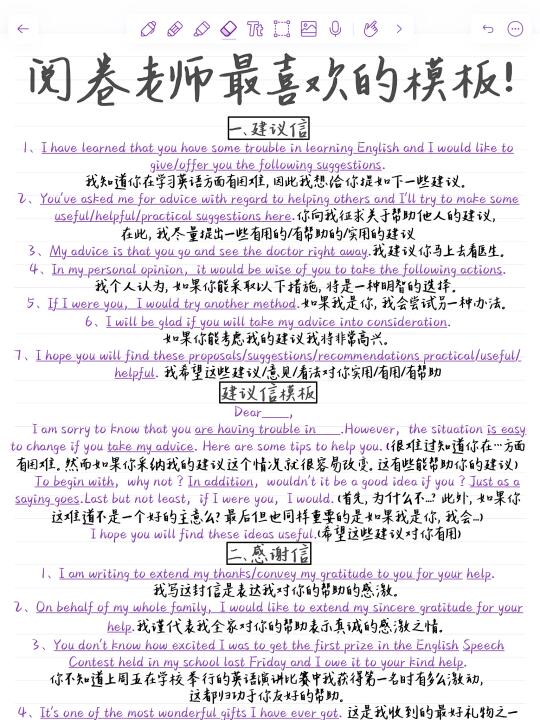 阅卷老师最喜欢的模板!
一、建议信
1、I have learned that you have some trouble in learning English and I would like to
give/offer you the following suggestions.
我知道你在学习英语方面有困难,因此我想给你提如下一些建议。
2、You've asked me for advice with regard to helping others and I'll try to make some
useful/helpful/practical suggestions here.你向我征求关于帮助他人的建议,
在此,我尽量提出一些有用的/有帮助的/实用的建议
3、My advice is that you go and see the doctor right away.我建议你马上去看医生。
4、In my personal opinion, it would be wise of you to take the following actions.
我个人认为,如果你能采取以下措施,将是一种明智的选择。
5、If I were you, I would try another method.如果我是你,我会尝试另一种办法。
6、I will be glad if you will take my advice into consideration.
如果你能考虑我的建议我将非常高兴。
7、I hope you will find these proposals/suggestions/recommendations practical/useful/
helpful. 我希望这些建议/意见/看法对你实用/有用/有帮助
建议信模板
Dear____,
I am sorry to know that you are having trouble in ____.However, the situation is easy
to change if you take my advice. Here are some tips to help you. (很难过知道你在…方面
有困难。然而如果你采纳我的建议这个情况就很容易改变。这有些能帮助你的建议)
To begin with, why not ? In addition, wouldn't it be a good idea if you ? Just as a
saying goes.Last but not least, if I were you, I would. (首先,为什么不…? 此外,如果你
这难道不是一个好的主意么? 最后但也同样重要的是如果我是你,我会…)
I hope you will find these ideas useful.(希望这些建议对你有用)
二、感谢信
1、I am writing to extend my thanks/convey my gratitude to you for your help.
我写这封信是表达我对你的帮助的感激。
2、On behalf of my whole family, I would like to extend my sincere gratitude for your
help.我谨代表我全家对你的帮助表示真诚的感激之情。
3、You don't know how excited I was to get the first prize in the English Speech
Contest held in my school last Friday and I owe it to your kind help.
你不知道上周五在学校举行的英语演讲比赛中我获得第一名时有多么激动,
这都归功于你友好的帮助。
4、It's one of the most wonderful gifts I have ever got. 这是我收到的最好礼物之一